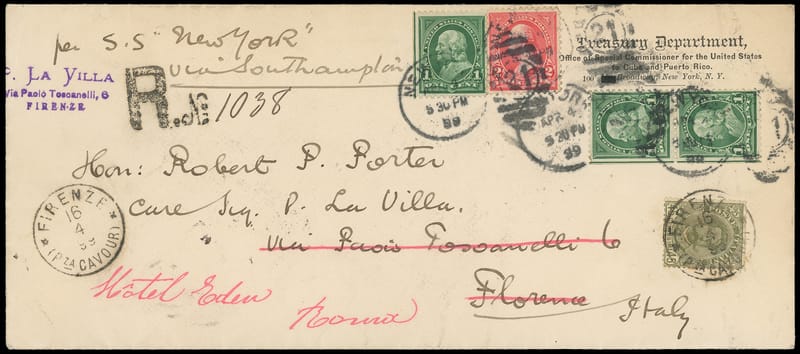 per S.S "New York"
via Southampton
P. LA VILLA
Via Paolo Toscanelli, 6
FIRENZE
R
1038
1 ONE CENT 1
2
NEW
5 30 PM
99
21
Treasury Department,
Office of Special Commissioner for the United States
to Cuba and Puerto Rico.
100 Broadway, New York, N. Y.
APR 4
5 30 PM
99
1
1
1
Hon: Robert P. Porter
Care Sig. P. La Villa.
Via Paolo Toscanelli 6
Florence
Italy
Hôtel Eden
Roma
* FIRENZE *
16
4
99
(Pza CAVOUR)
FIRENZE
16
(Pza CAVOUR)